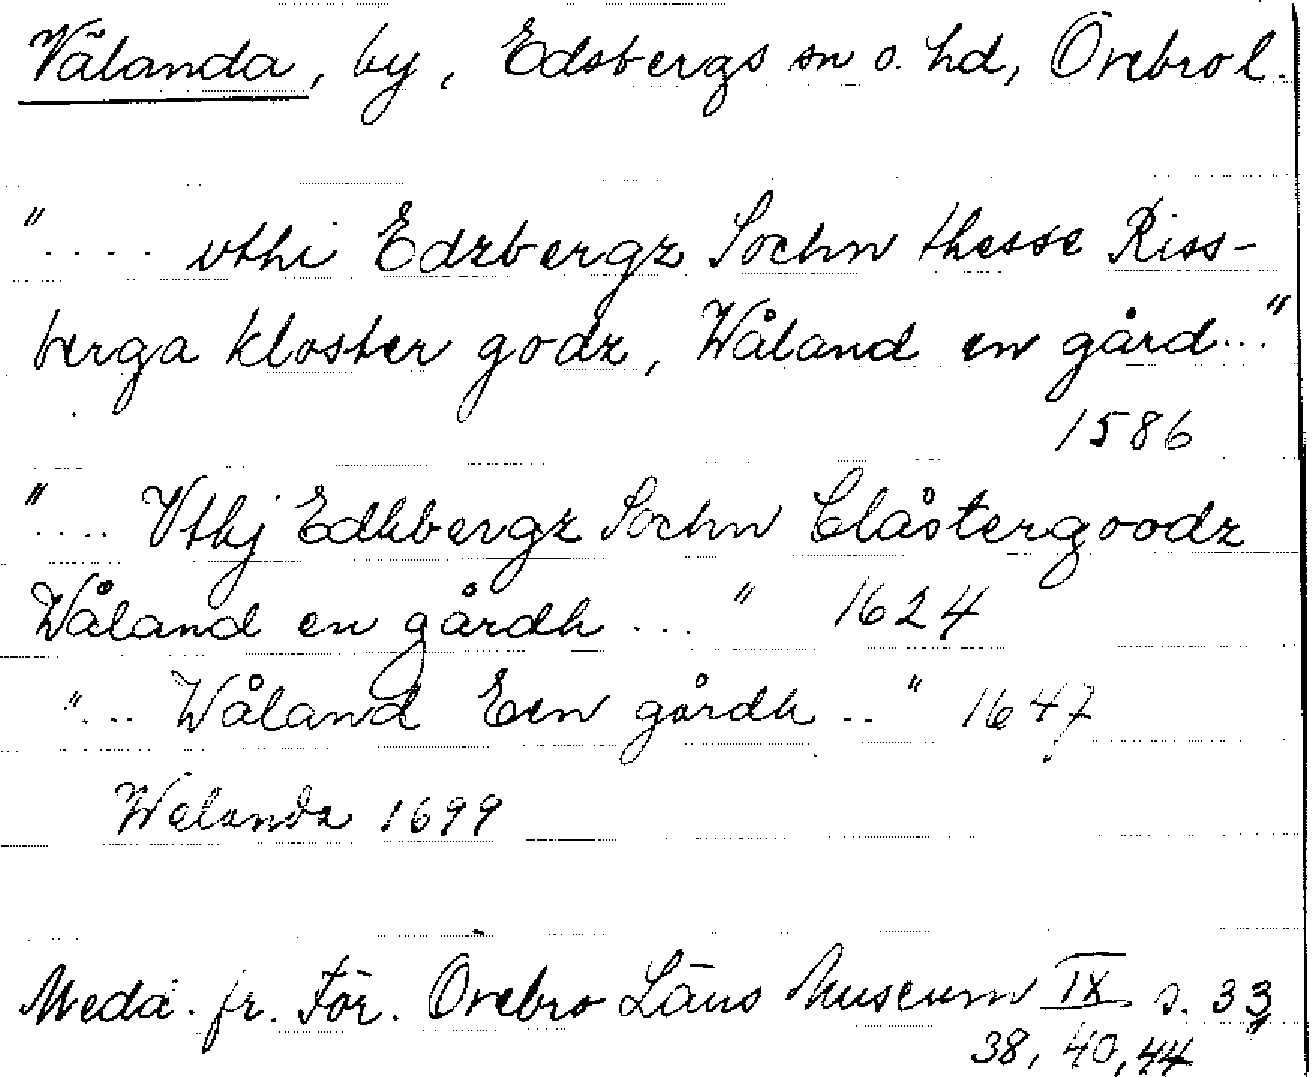 Vålanda, by, Edsbergs sn o. hd, Örebro l.
".... vthi Edzbergz Sochn thesse Riss-
berga kloster godz, Wåland en gård..."
1586
".... Vthj Edhbergz Sochn Clåstergoodz
Wåland en gårdh ..." 1624
"... Wåland Een gårdh .." 1647
Walanda 1699
Medd. fr. För. Örebro Läns Museum IX s. 33,
38, 40, 44